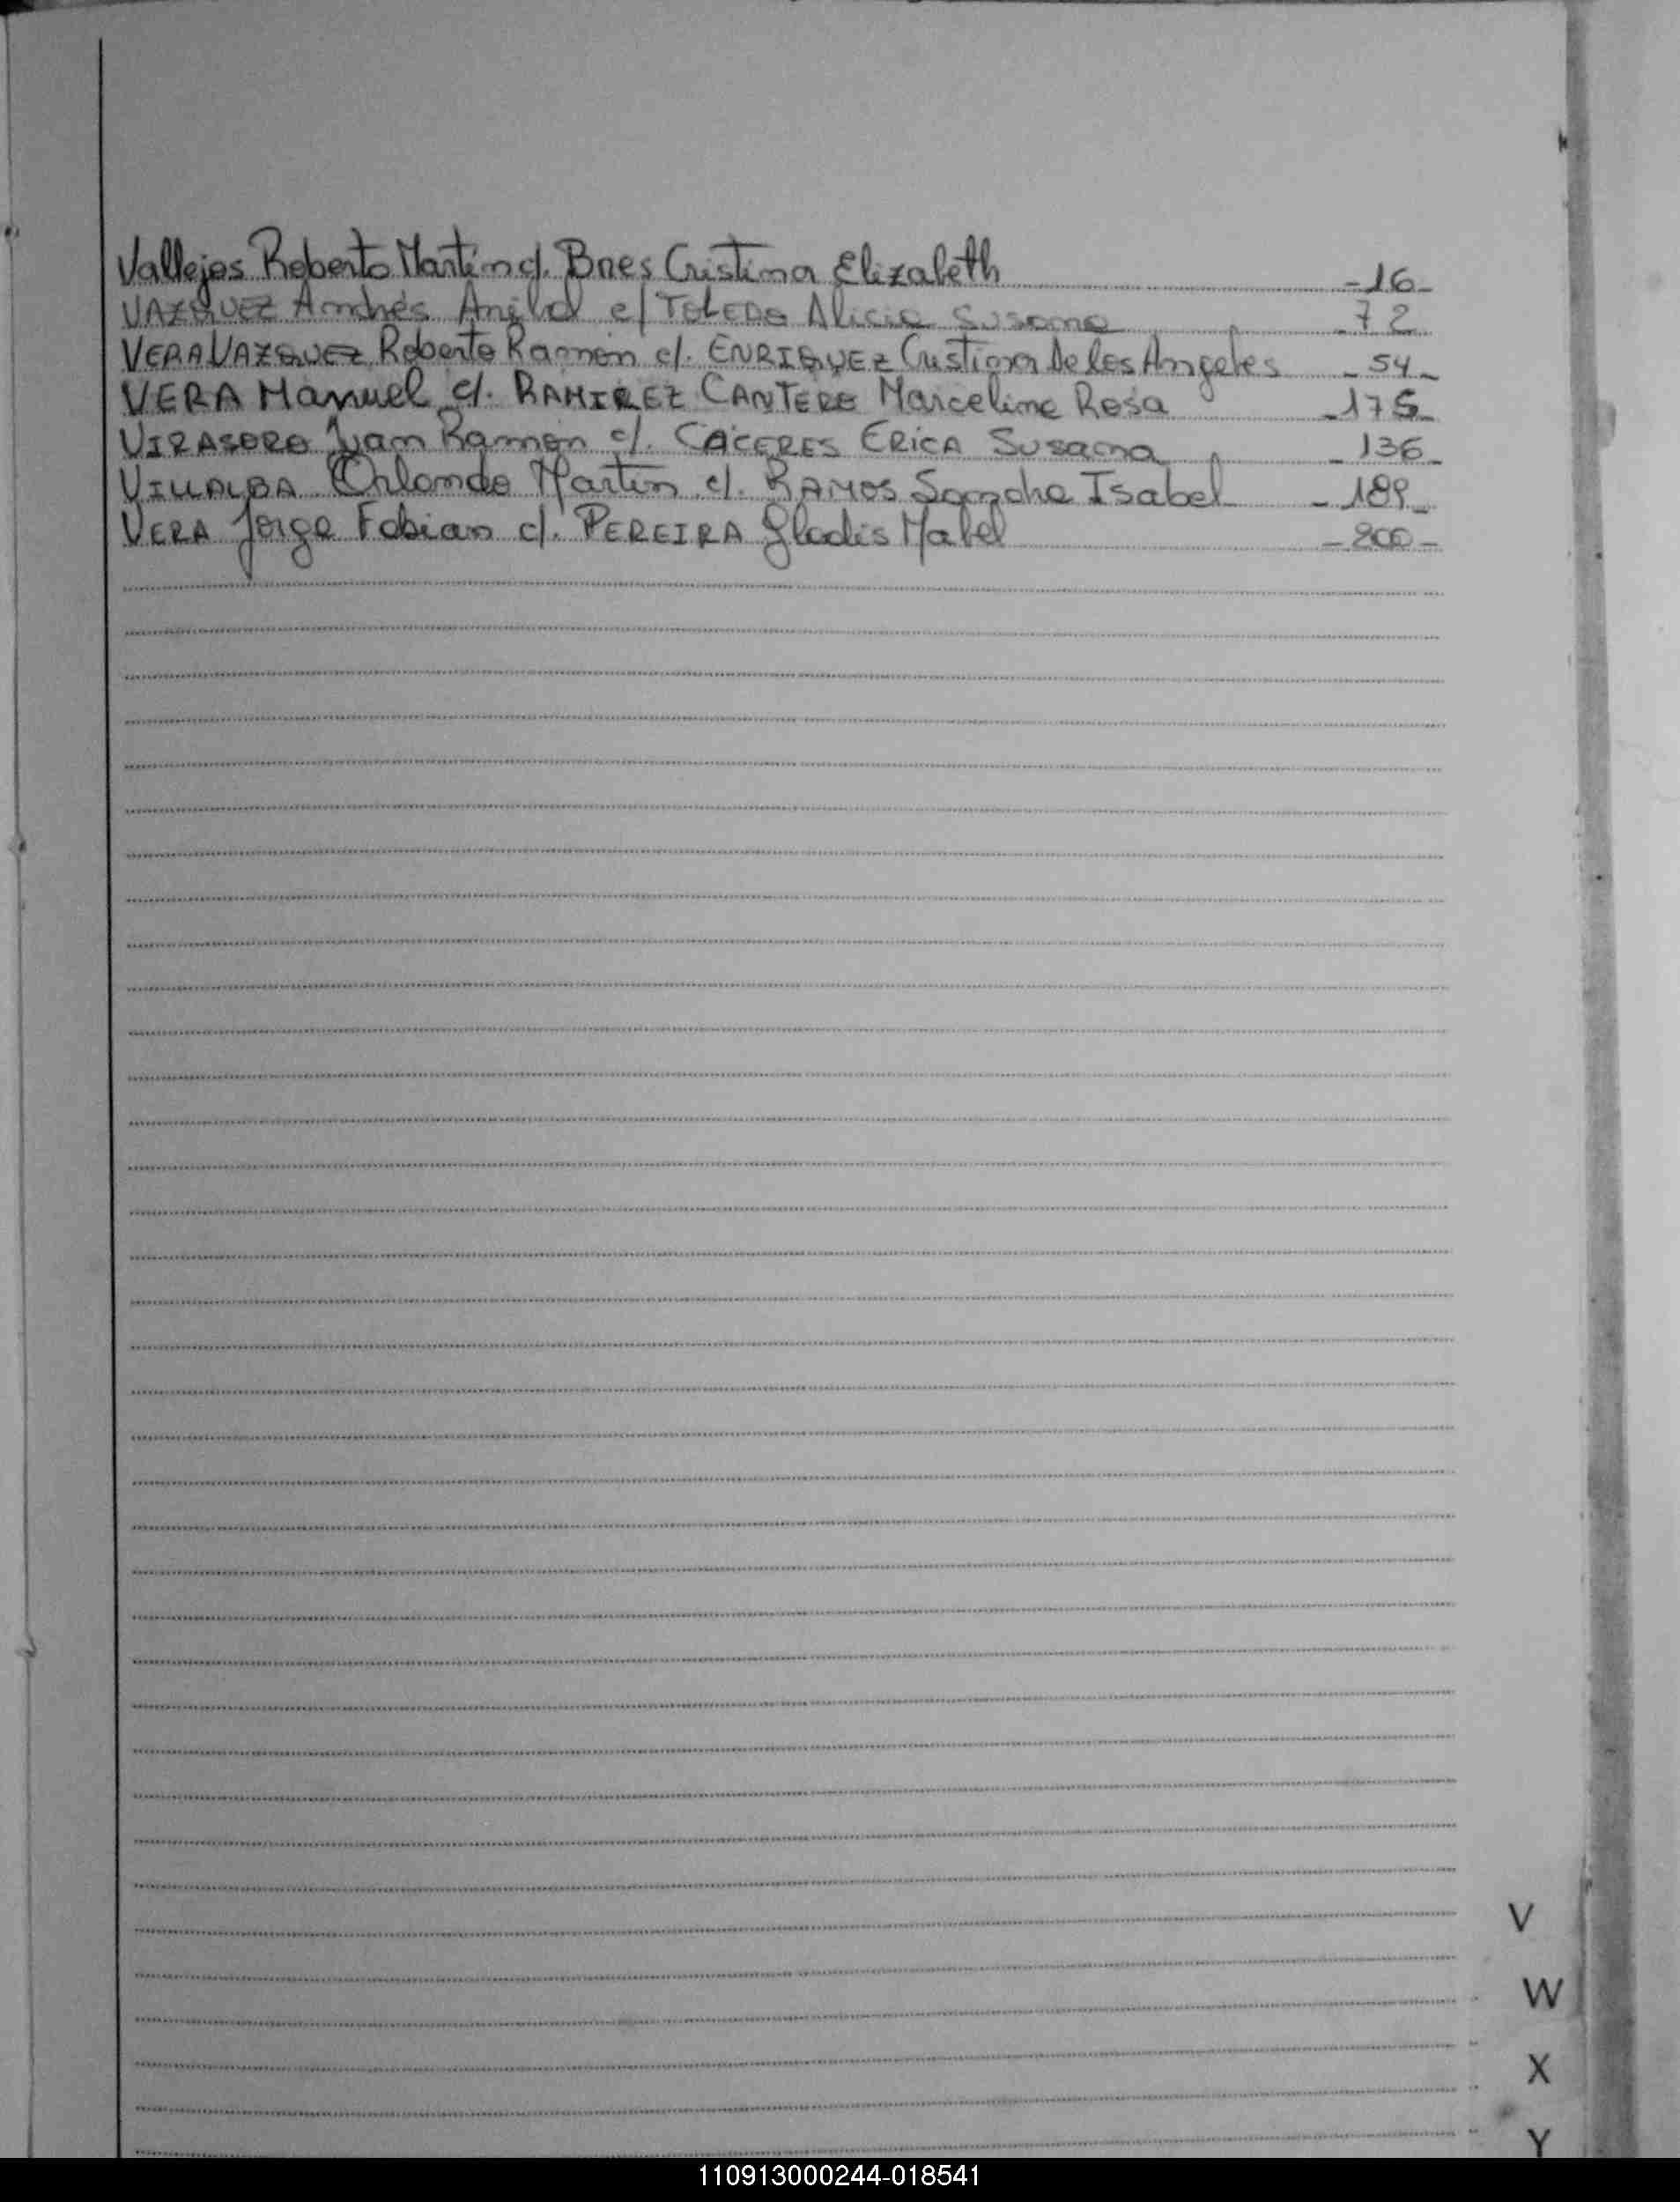 Vallejos Roberto Martin c/. Bnes Cristina Elizabeth -16-
VAZQUEZ Andrés c/ TOLEDO Alicia Susana 72
VERA VAZQUEZ Roberto Ramón c/. ENRIQUEZ Cristina De los Angeles - 54 -
VERA Manuel c/. RAMIREZ CANTERO Marcelina Rosa -175-
VIRASORO Juan Ramón c/. CACERES ERICA Susana - 136 -
VILLALBA Orlando Martin c/. RAMOS Sandra Isabel - 189 -
VERA Jorge Fabian c/. PEREIRA Gladis Mabel - 200 -
V
W
X
Y
110913000244-018541